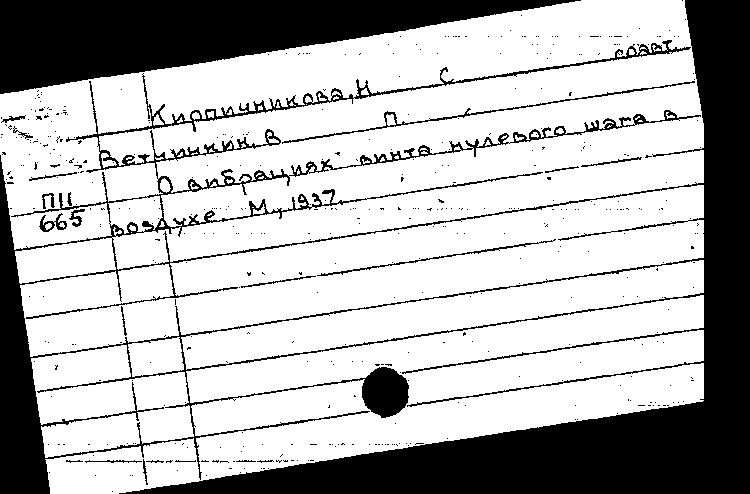 Кирпичникова, Н С соавт.
Ветчинкин, В П
О вибрациях винта нулевого шага в
ПII
665
воздухе. М., 1937.